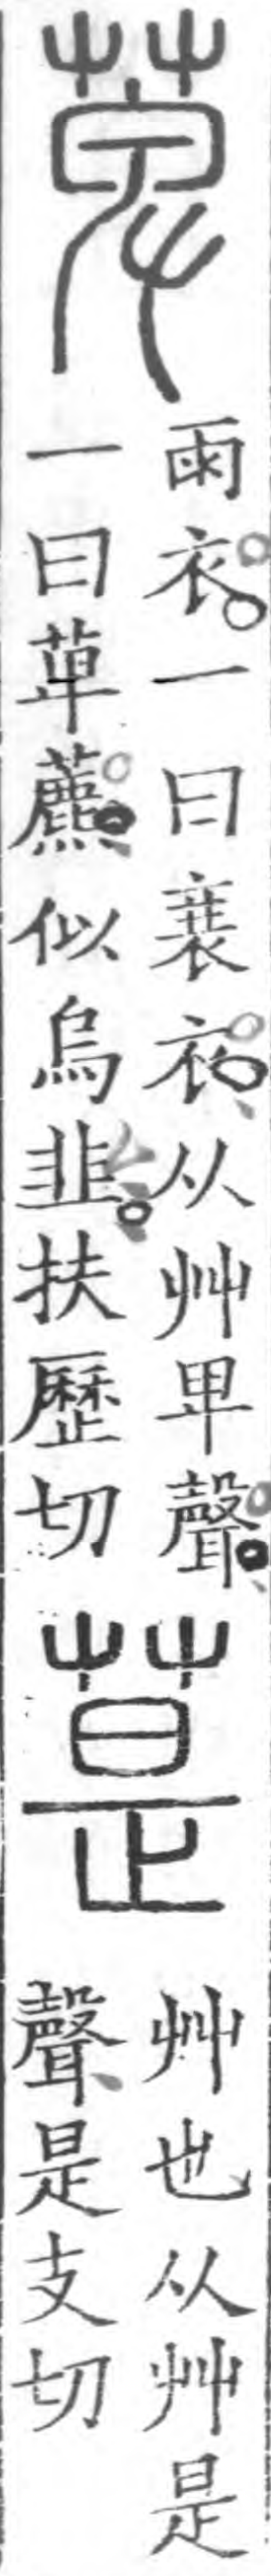 萆
雨衣。一曰衰衣。从艸卑聲。
一曰萆藨。似烏韭。扶歷切
䓳
艸也从艸是
聲、是支切